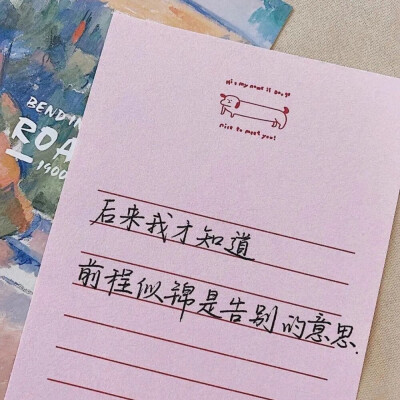 BEND IN
ROA
1900
Hi's my name is
nice to meet you!
后来我才知道
前程似锦是告别的意思.